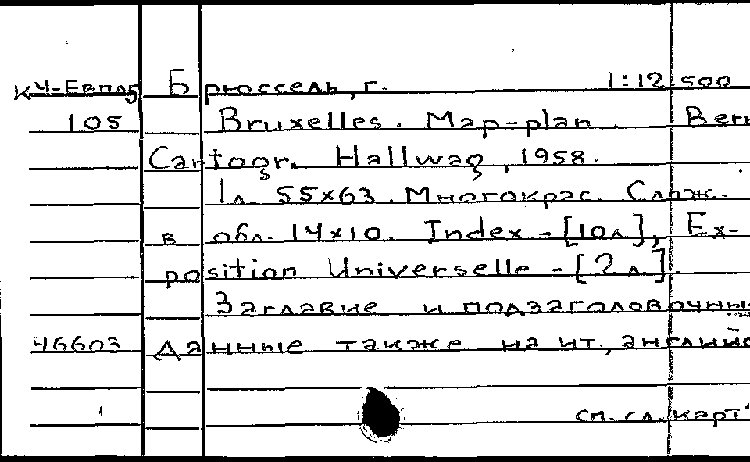 К4-Евпл5 Брюссель, г. 1:12 500
105 Bruxelles. Map-plan Bern
Cartogr. Hallwag, 1958.
1л. 55x63. Многокрас. Слож.
в обл. 14x10. Index - [10л], Ex-
position Universelle - [2л].
Заглавие и подзаголовочные
46603 Данные также на ит., англий
см. сл. карт